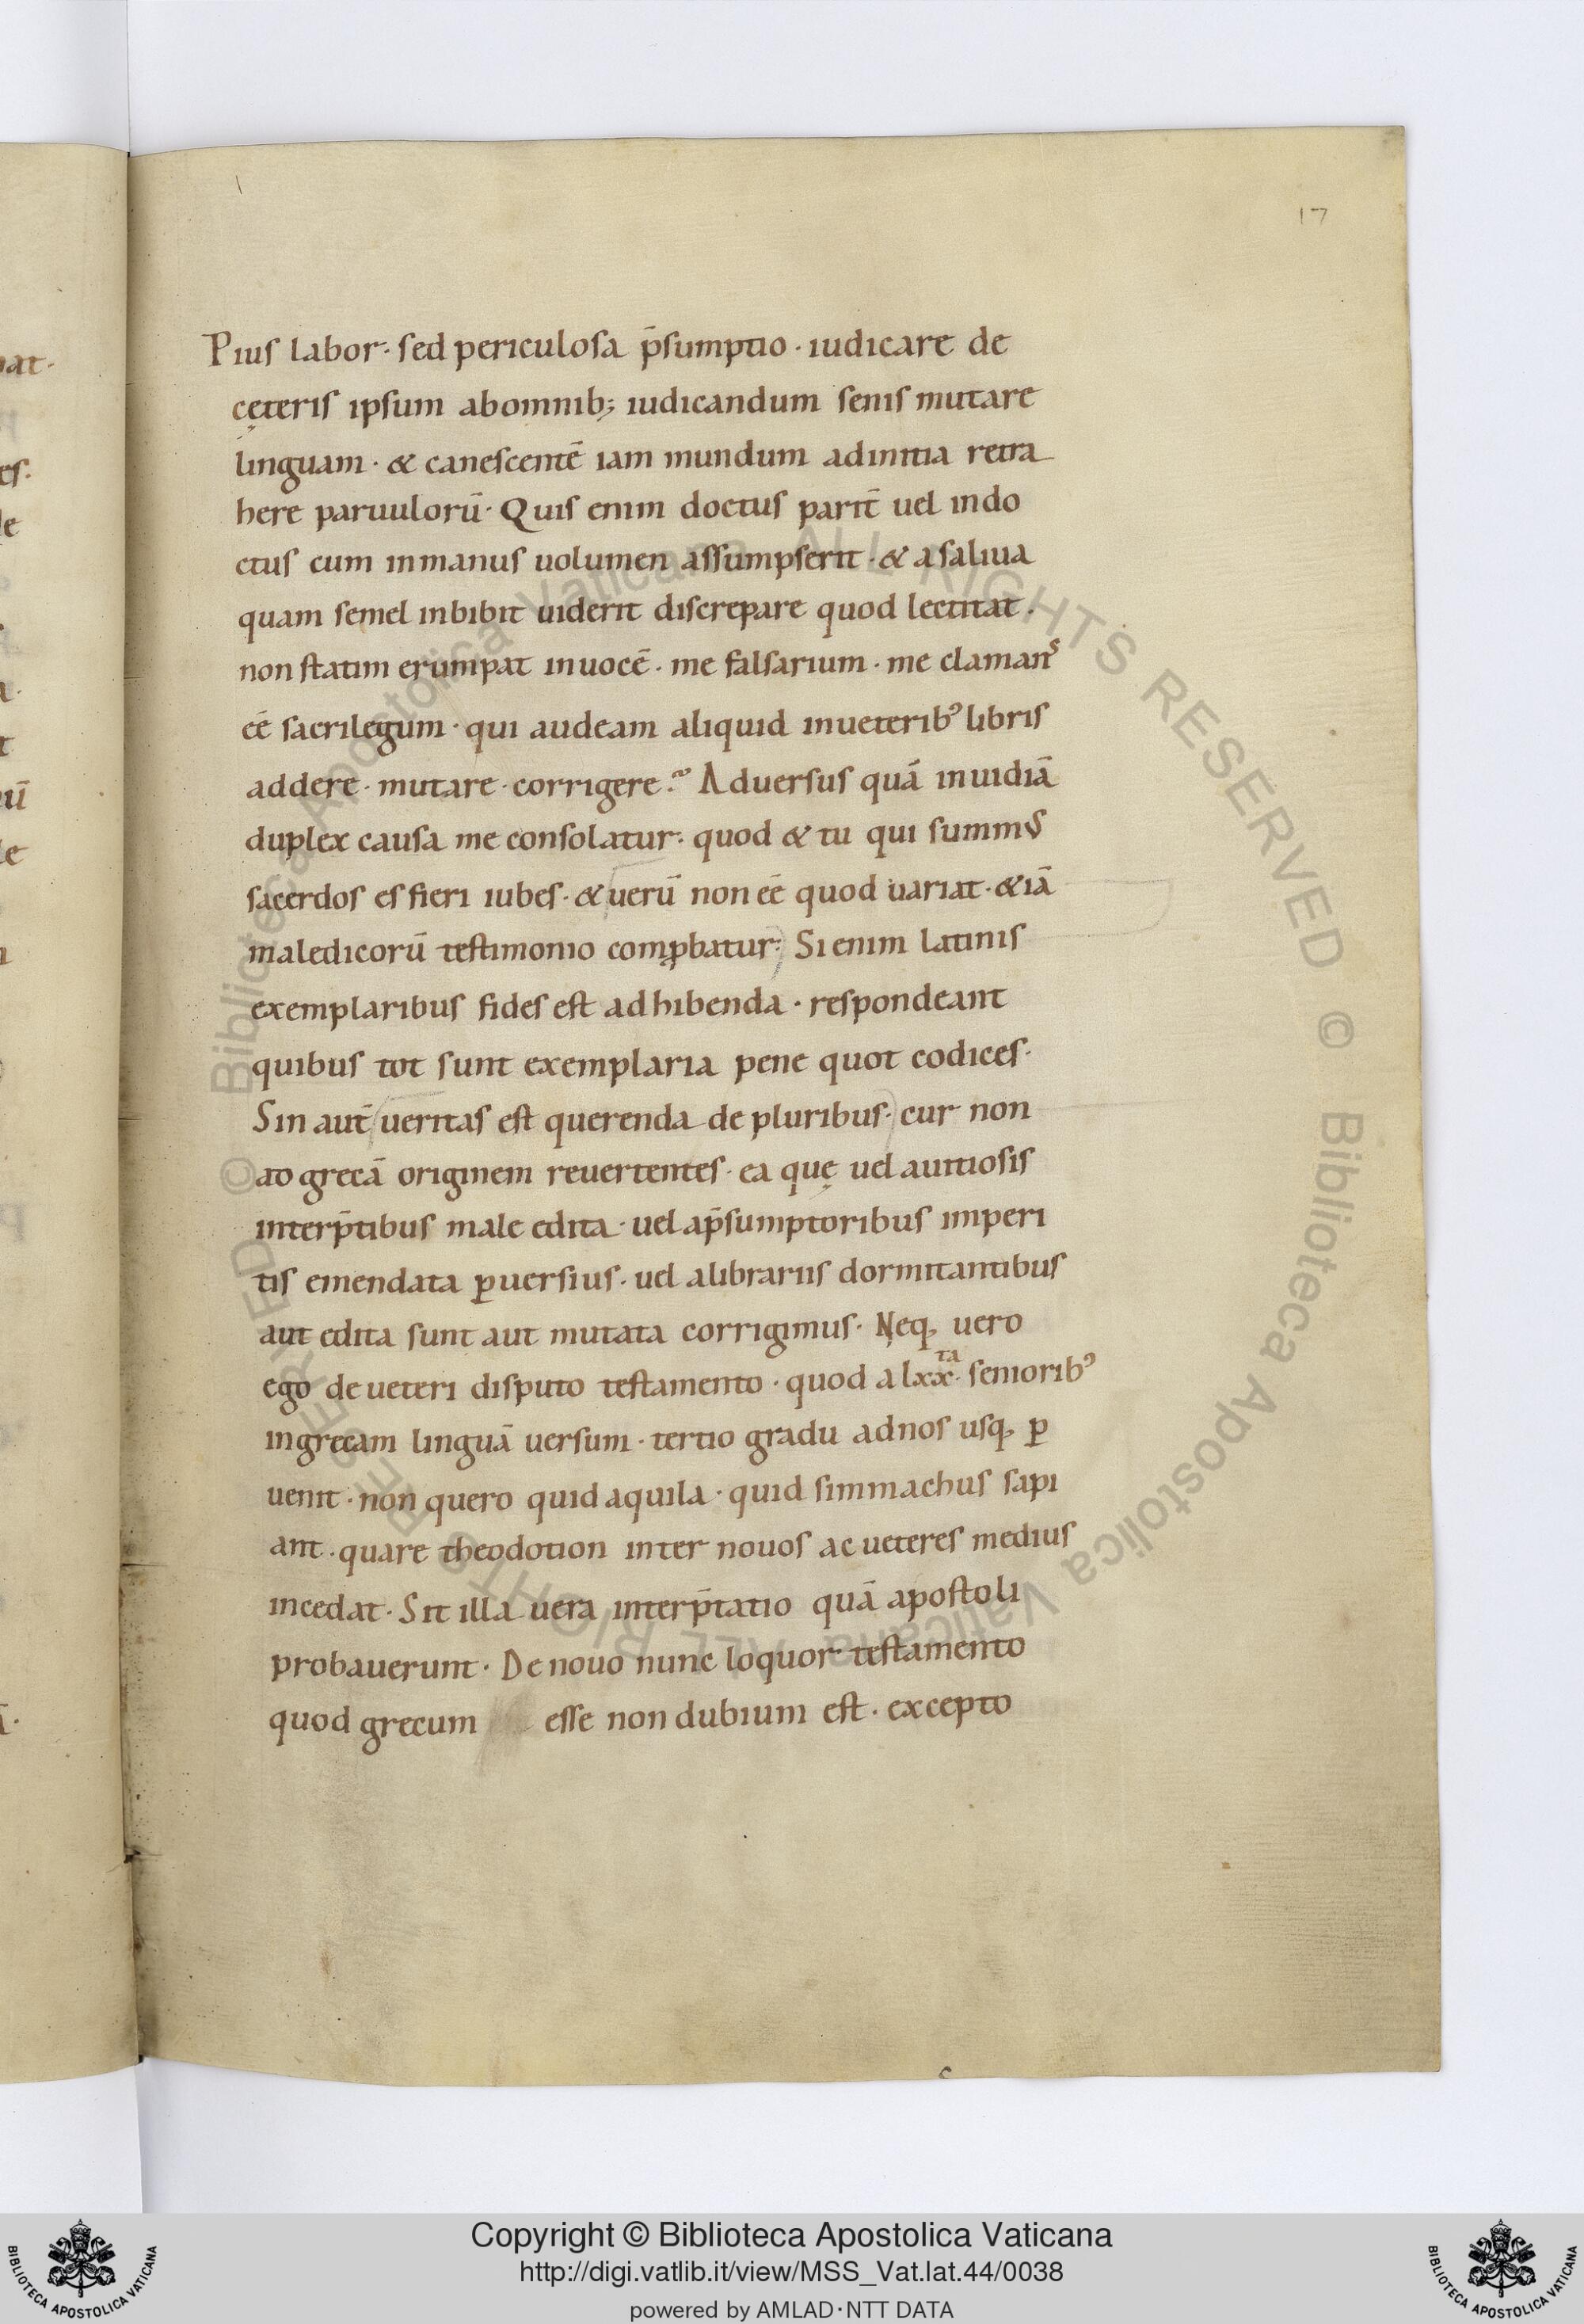 17
Pius labor· sed periculosa p̄sumptio · iudicare de
cęteris ipsum abomnib; iudicandum senis mutare
linguam · & canescentē iam mundum adinitia retra
here paruulorū· Quis enim doctus parit̄ uel indo
ctus cum inmanus uolumen assumpserit · & asaliua
quam semel inbibit uiderit discrepare quod lectitat ·
non statim erumpat inuocē · me falsarium · me clamanˢ
eē sacrilegum · qui audeam aliquid inueterib⁹ libris
addere · mutare · corrigere? Aduersus quā inuidiā
duplex causa me consolatur: quod & tu qui summus
sacerdos es fieri iubes · & uerū non eē quod uariat · &iā
maledicorū testimonio comꝓbatur: Si enim latinis
exemplaribus fides est adhibenda · respondeant
quibus tot sunt exemplaria pene quot codices·
Sin aut̄ ueritas est querenda de pluribus · cur non
ad grecā originem reuertentes · ea quę uel auitiosis
interp̄tibus male edita · uel ap̄sumptoribus imperi
tis emendata ꝑuersius · uel alibrariis dormitantibus
aut edita sunt aut mutata corrigimus · Neq, uero
ego de ueteri disputo testamento · quod a lxxᵗᵃ· seniorib⁹
ingrecam linguā uersum · tertio gradu adnos usq, ꝑ
uenit · non quero quid aquila · quid simmachus sapi
ant · quare theodotion inter nouos ac ueteres medius
incedat · Sit illa uera interp̄tatio quā apostoli
probauerunt · De nouo nunc loquor testamento
quod grecum esse non dubium est · excepto
© Biblioteca Apostolica Vaticana ALL RIGHTS RESERVED © Biblioteca Apostolica Vaticana ALL RIGHTS RESERVED
BIBLIOTECA APOSTOLICA VATICANA
Copyright © Biblioteca Apostolica Vaticana
http://digi.vatlib.it/view/MSS_Vat.lat.44/0038
powered by AMLAD·NTT DATA
BIBLIOTECA APOSTOLICA VATICANA